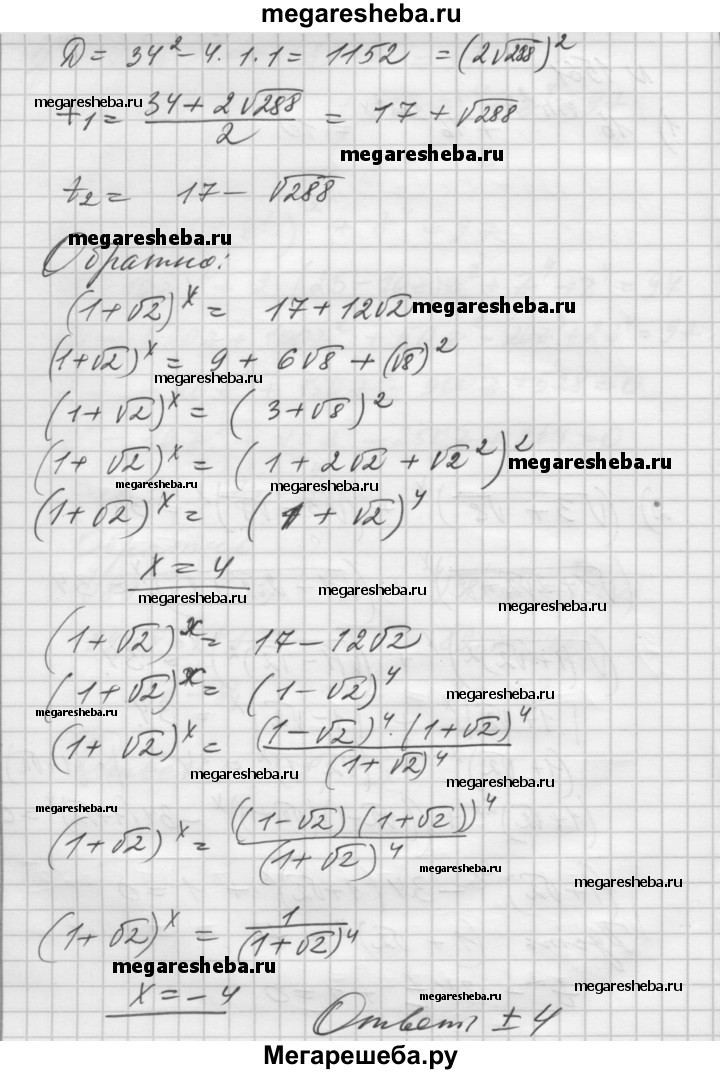 megaresheba.ru
D = 34² - 4·1·1 = 1152 = (2√288)²
megaresheba.ru
t₁ = (34 + 2√288)/2 = 17 + √288
megaresheba.ru
t₂ = 17 - √288
megaresheba.ru
Обратно:
(1+√2)ˣ = 17 + 12√2
megaresheba.ru
(1+√2)ˣ = 9 + 6√8 + (√8)²
megaresheba.ru
(1+√2)ˣ = (3+√8)²
(1+√2)ˣ = (1 + 2√2 + √2²)²
megaresheba.ru
megaresheba.ru
megaresheba.ru
(1+√2)ˣ = (1+√2)⁴
x = 4
megaresheba.ru
megaresheba.ru
megaresheba.ru
(1+√2)ˣ = 17 - 12√2
(1+√2)ˣ = (1-√2)⁴
megaresheba.ru
megaresheba.ru
(1+√2)ˣ = ((1-√2)⁴·(1+√2)⁴)/(1+√2)⁴
megaresheba.ru
megaresheba.ru
megaresheba.ru
(1+√2)ˣ = ((1-√2)(1+√2))⁴/(1+√2)⁴
megaresheba.ru
megaresheba.ru
(1+√2)ˣ = 1/(1+√2)⁴
megaresheba.ru
megaresheba.ru
megaresheba.ru
x = -4
Ответ ±4
Мегарешеба.ру